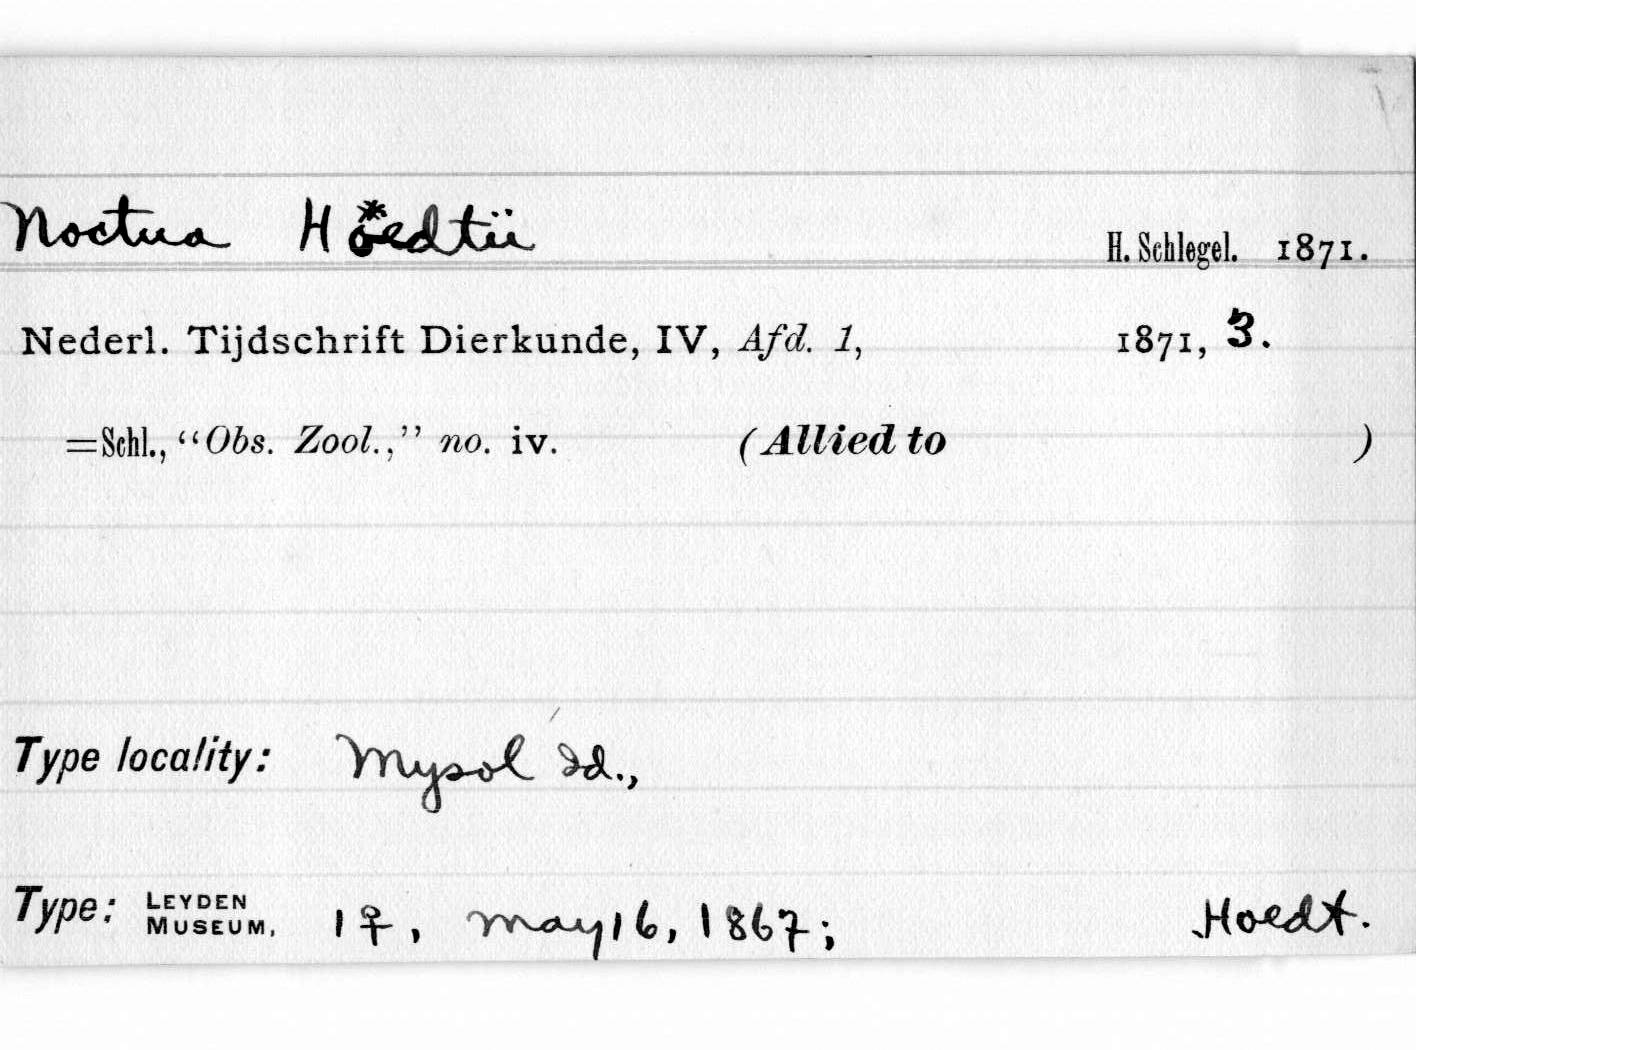 Noctua Hoedtii H. Schlegel. 1871.
Nederl. Tijdschrift Dierkunde, IV, Afd. 1, 1871, 3.
=Schl., “Obs. Zool.,” no. iv. (Allied to )
Type locality: Mysol Id.,
Type: LEYDEN MUSEUM, 1♀, May 16, 1867; Hoedt.